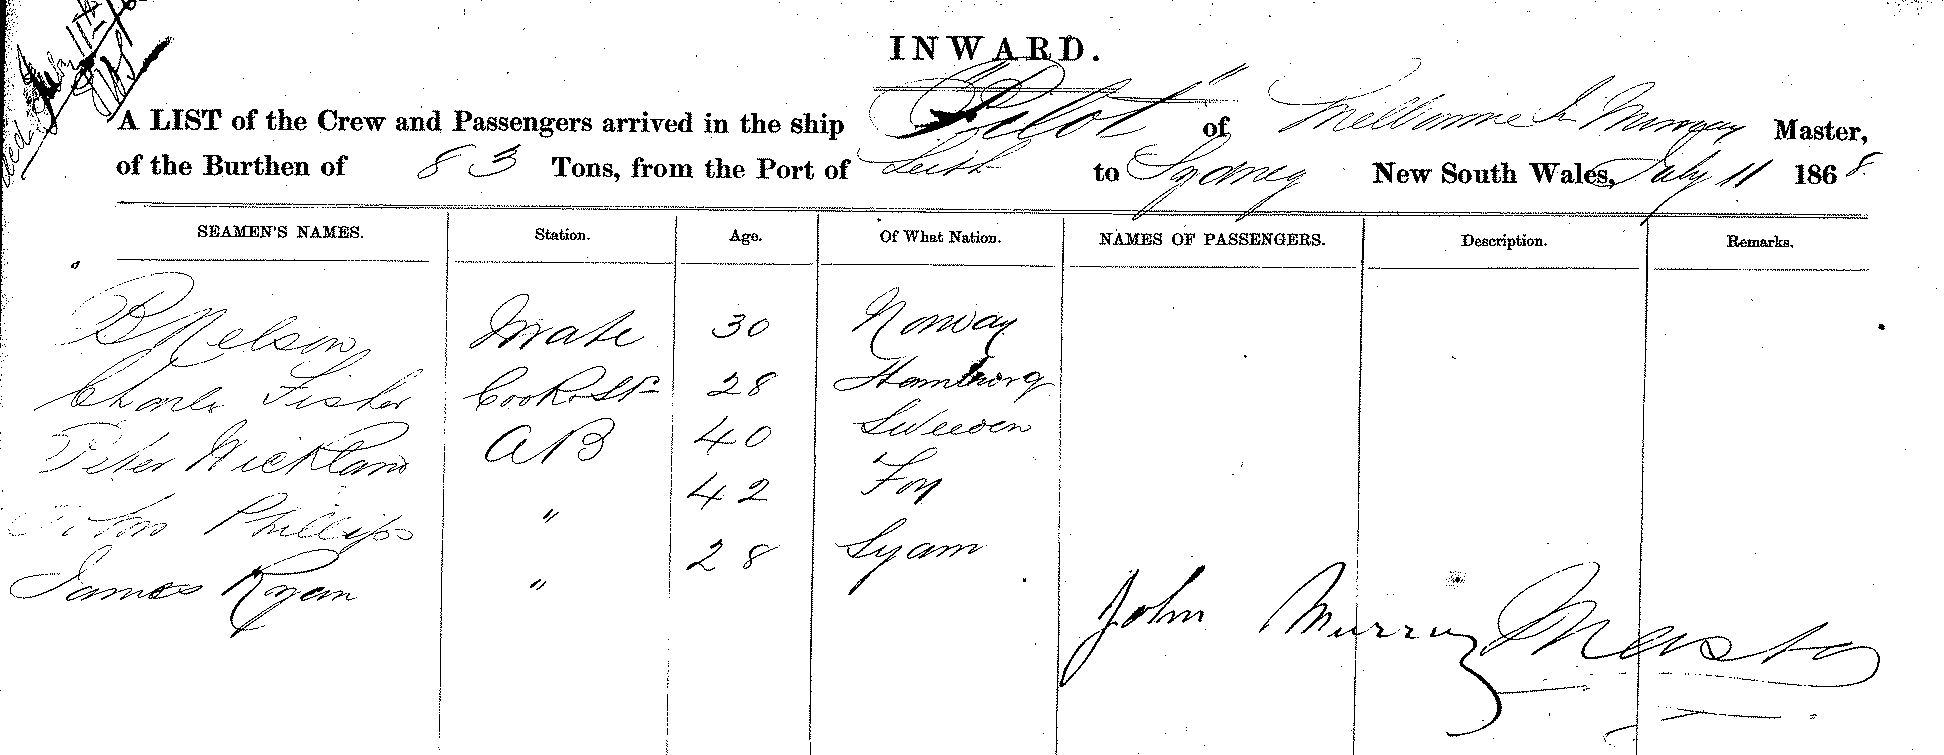 July 11th
INWARD.
A LIST of the Crew and Passengers arrived in the ship "Pilot" of Melbourne Jn Murray Master,
of the Burthen of 83 Tons, from the Port of Leith to Sydney New South Wales, July 11 1868.
SEAMEN'S NAMES. Station. Age. Of What Nation. NAMES OF PASSENGERS. Description. Remarks.
B Nelson Mate 30 Norway
Charles Fisher Cook & St 28 Hamborg
Peter Wickland AB 40 Sweeden
John Phillips " 42 
James Ryan " 28 Syam
John Murray Master